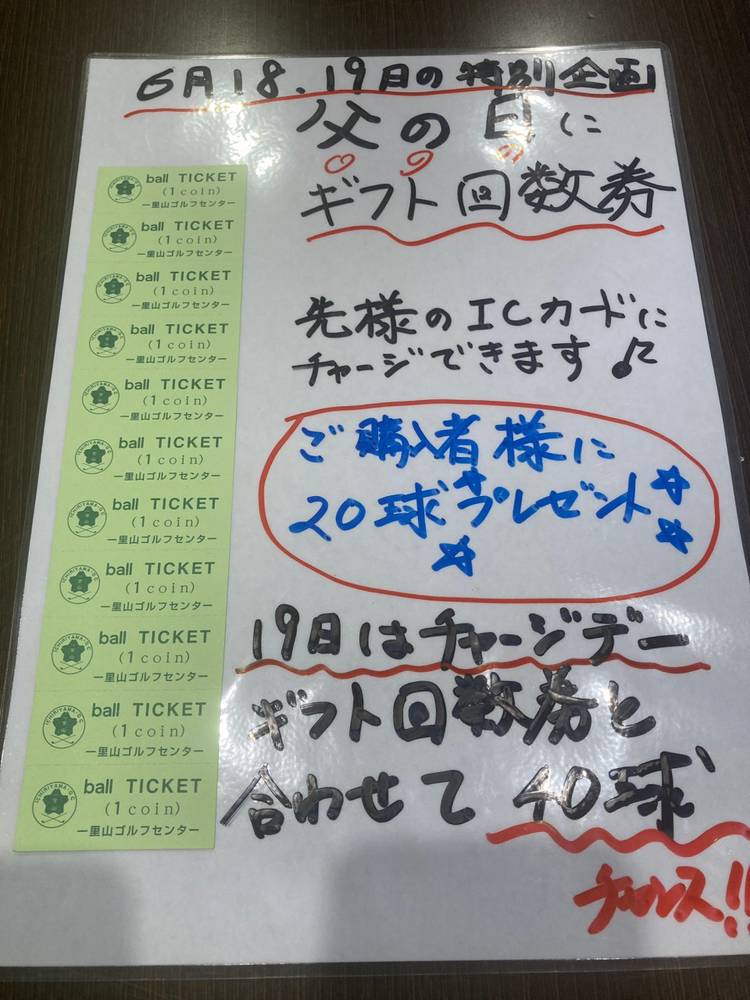 6月18、19日の特別企画
父の日に
ギフト回数券
先様のICカードに
チャージできます♪
ご購入者様に
20球プレゼント
19日はチャージデー
ギフト回数券と
合わせて40球
チャンス!!
ball TICKET
(1coin)
一里山ゴルフセンター
ball TICKET
(1coin)
一里山ゴルフセンター
ball TICKET
(1coin)
一里山ゴルフセンター
ball TICKET
(1coin)
一里山ゴルフセンター
ball TICKET
(1coin)
一里山ゴルフセンター
ball TICKET
(1coin)
一里山ゴルフセンター
ball TICKET
(1coin)
一里山ゴルフセンター
ball TICKET
(1coin)
一里山ゴルフセンター
ball TICKET
(1coin)
一里山ゴルフセンター
ball TICKET
(1coin)
一里山ゴルフセンター
ball TICKET
(1coin)
一里山ゴルフセンター